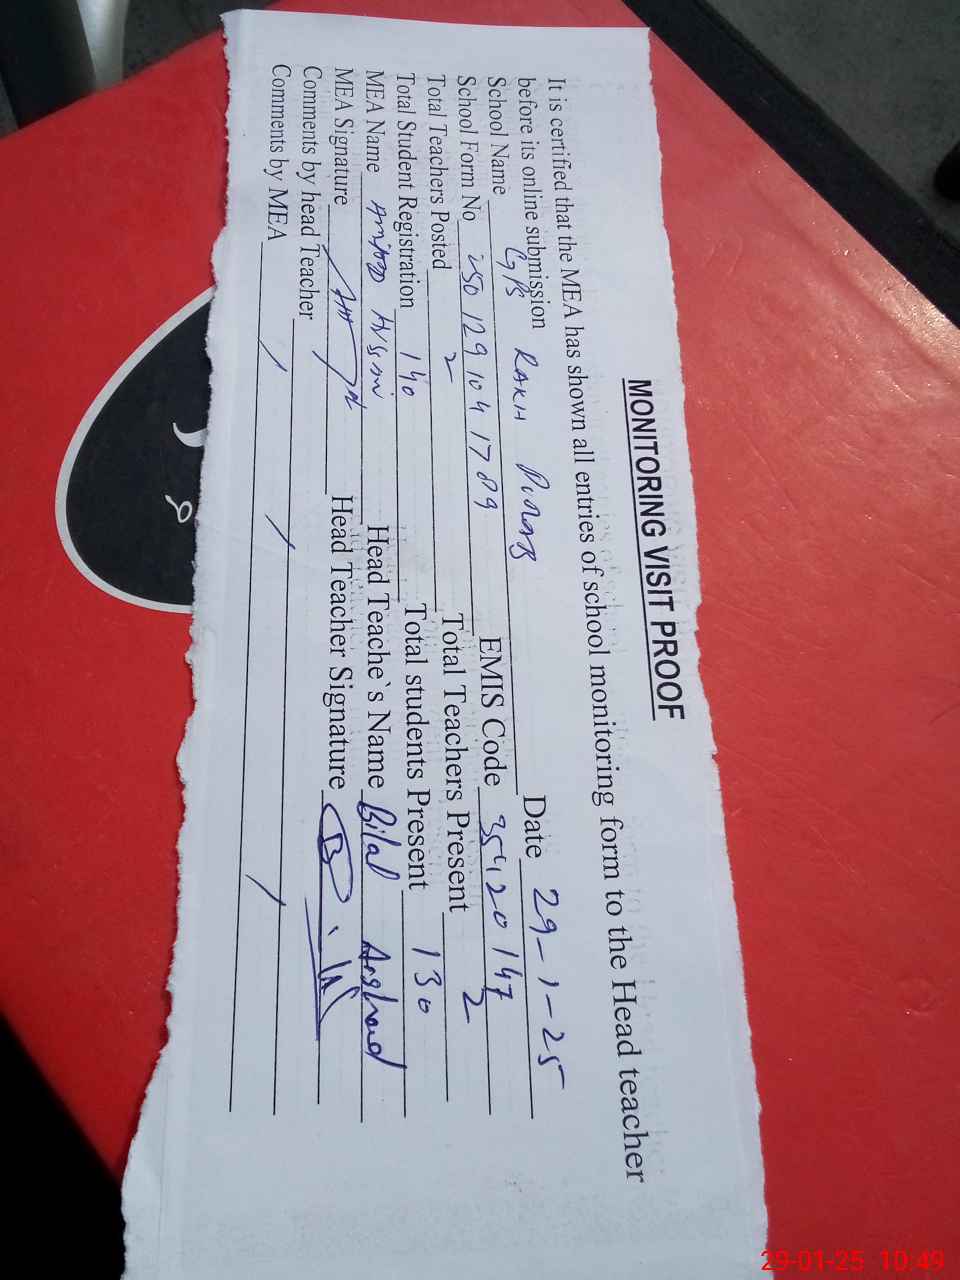 MONITORING VISIT PROOF
It is certified that the MEA has shown all entries of school monitoring form to the Head teacher
before its online submission Date 29-1-25
School Name GPS RAKH
School Form No 250129104 1789 EMIS Code 35420147
Total Teachers Posted 2 Total Teachers Present 2
Total Student Registration 140 Total students Present 130
MEA Name Head Teache`s Name Bilal Arshad
MEA Signature Head Teacher Signature
Comments by head Teacher
Comments by MEA
29-01-25 10:49